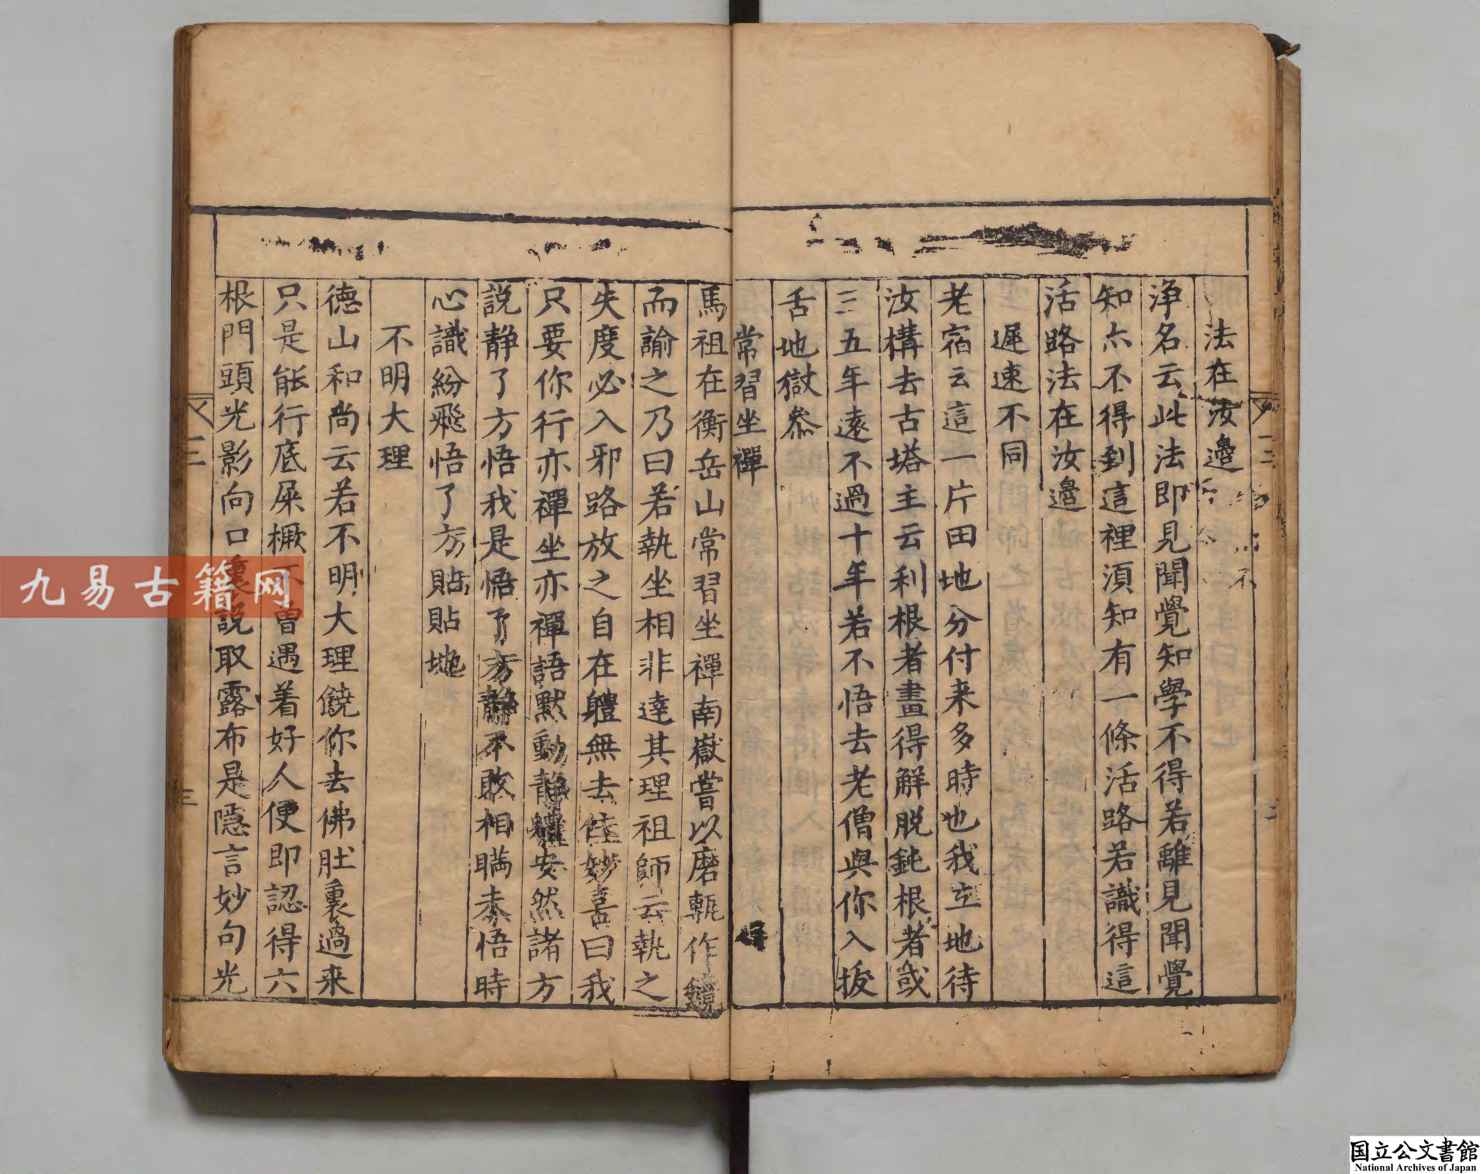 法在汝邉
浄名云此法即見聞覺知學不得若離見聞覺
知亦不得到這裡湏知有一條活路若識得這
活路法在汝邉
遲速不同
老宿云這一片田地分付来多時也我立地待
汝構去古塔主云利根者晝得解脱鈍根者或
三五年遠不過十年若不悟去老僧與你入拔
舌地獄叅
常習坐禪
馬祖在衡岳山常習坐禪南嶽嘗以磨甎作鏡
而諭之乃曰若執坐相非達其理祖師云執之
失度必入邪路放之自在軆無去住妙喜曰我
只要你行亦禪坐亦禪語默動静軆安然諸方
説静了方悟我是悟了方静不敢相瞞未悟時
心識紛飛悟了方貼貼地
不明大理
徳山和尚云若不明大理饒你去佛肚裏過来
只是能行底屎橛不曽遇着好人便即認得六
根門頭光影向口裏説取露布是隠言妙句光
三
九易古籍网
国立公文書館
National Archives of Japan